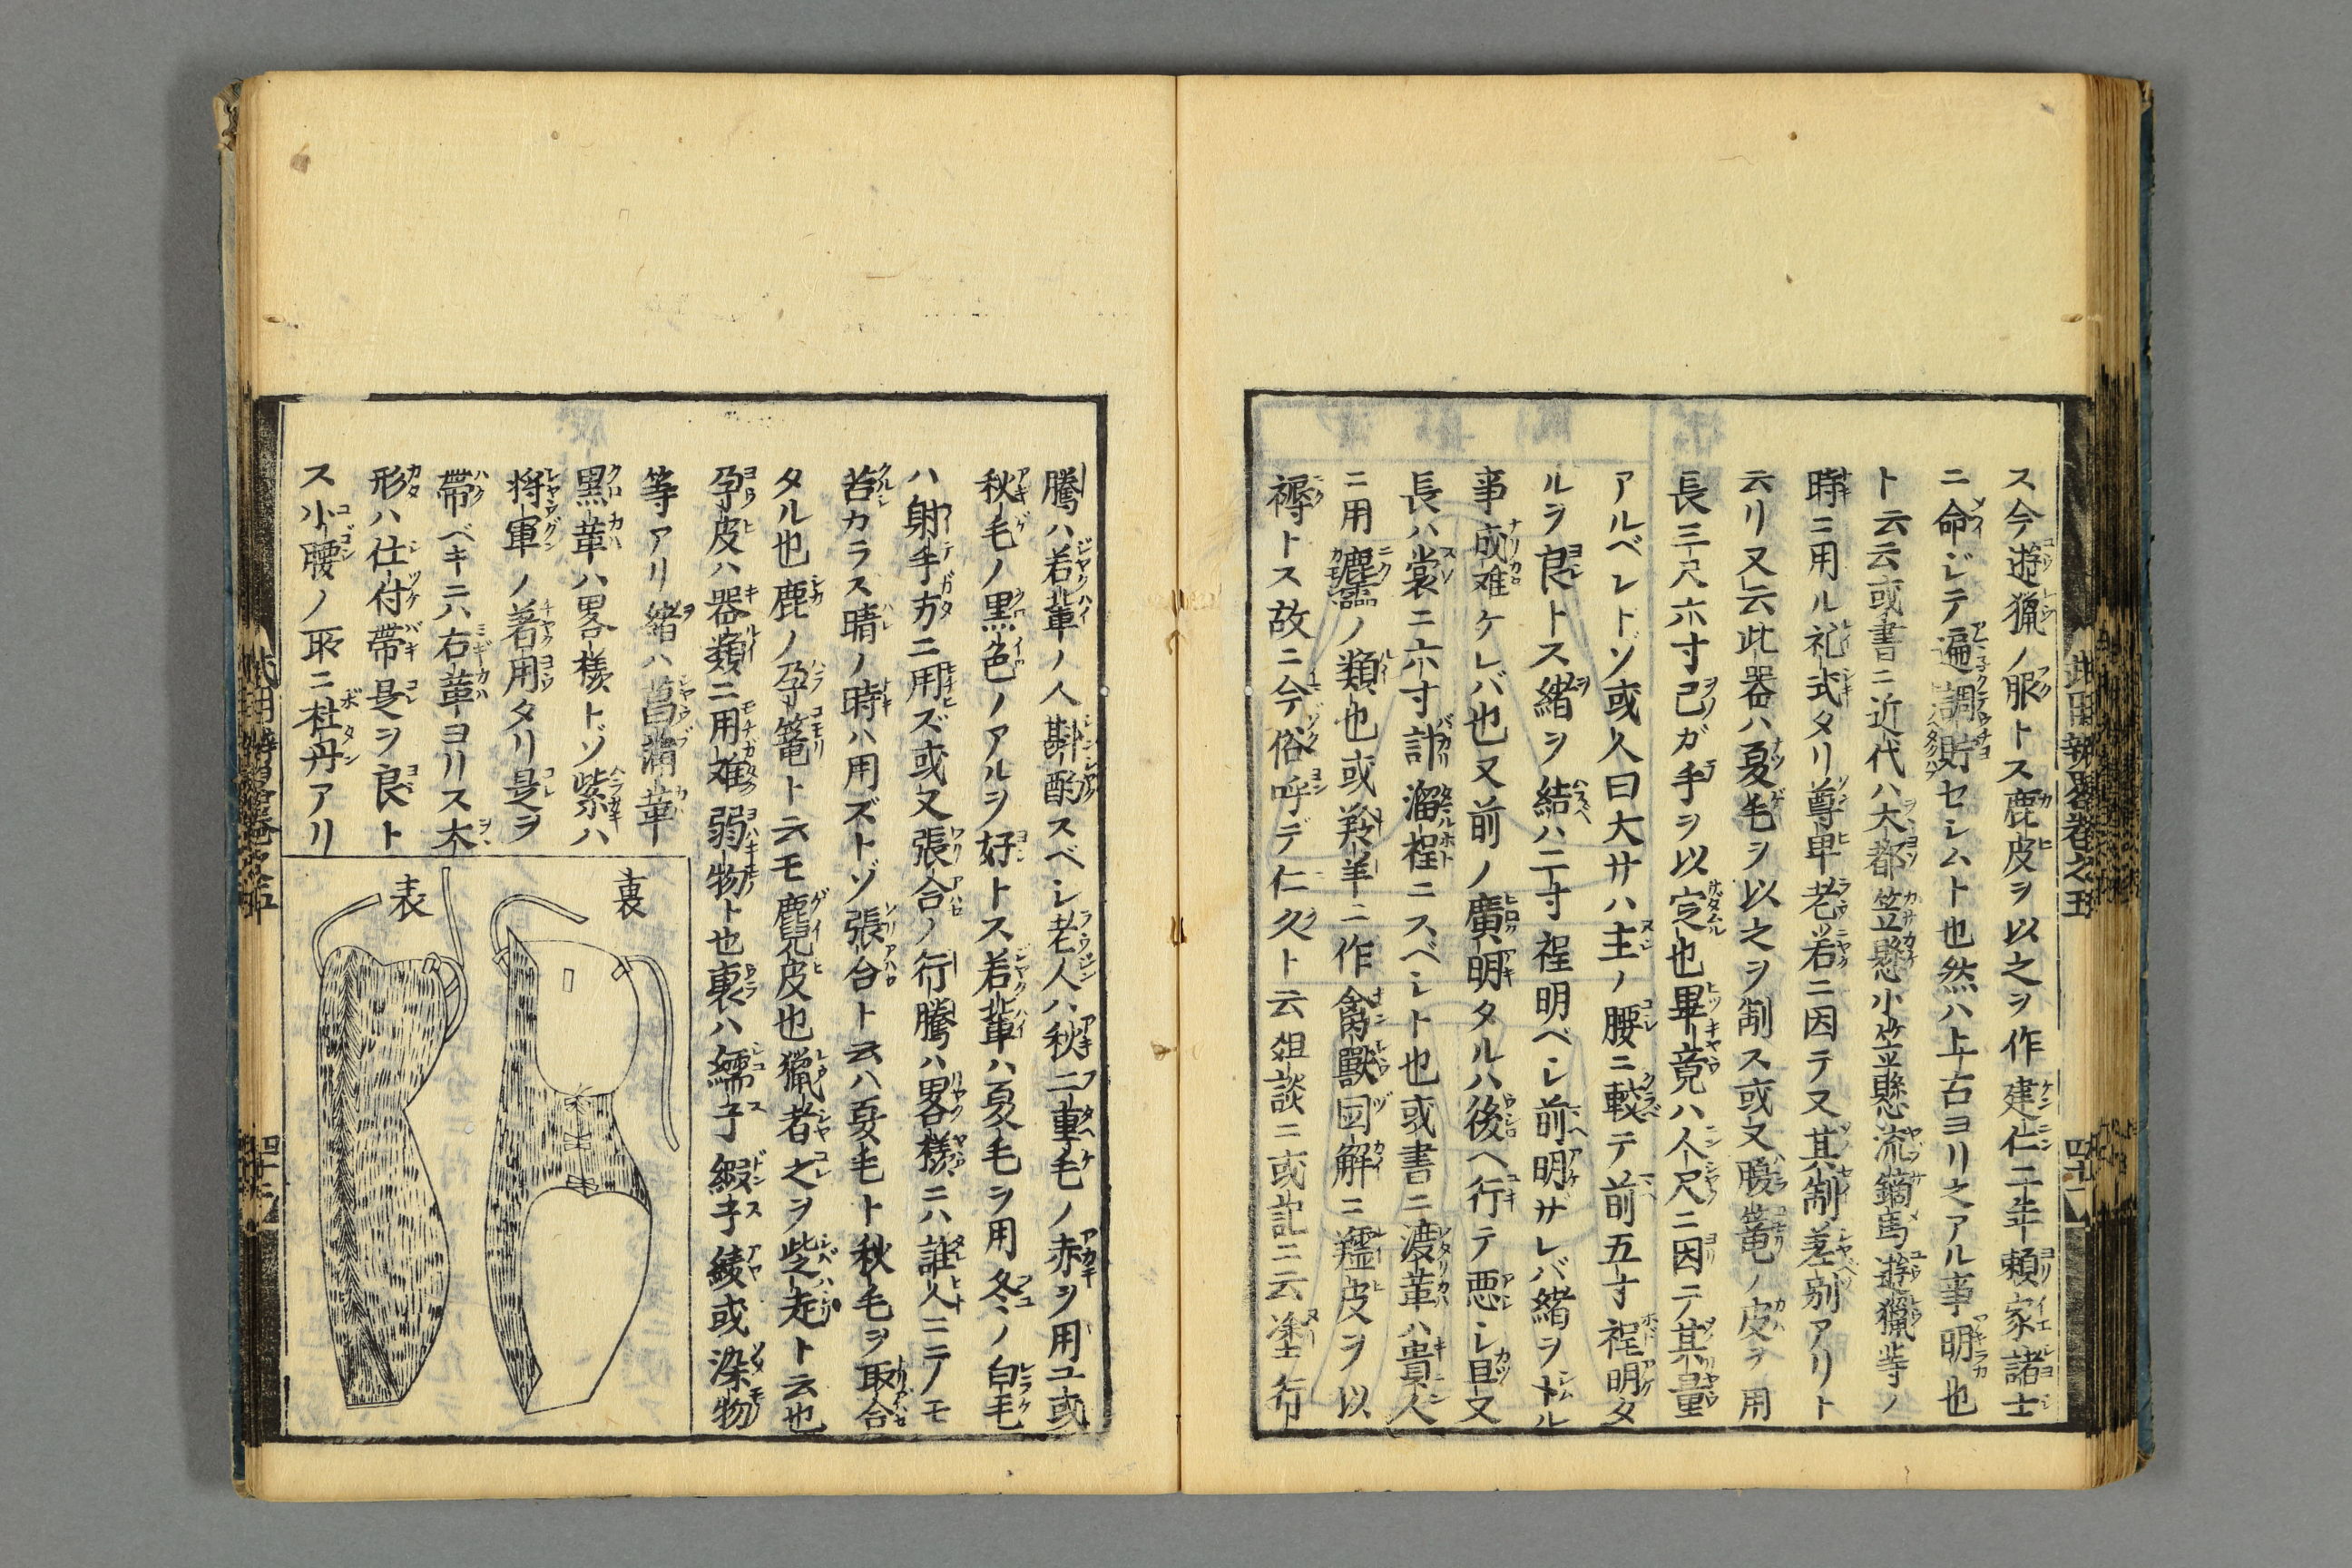 ス今遊猟ノ服トス鹿皮ヲ以之ヲ作建仁二年頼家諸士
ニ命ジテ遍調貯セシムト也然ハ上古ヨリ之アル事明也
ト云云或書ニ近代ハ大都笠懸小笠懸流鏑馬遊猟等ノ
時ニ用ル礼式タリ尊卑老若ニ因テ又其制差別アリト
云リ又云此器ハ夏毛ヲ以之ヲ制ス或又腹篭ノ皮ヲ用
長三尺六寸己ガ手ヲ以定也畢竟ハ人尺ニ因テ其量
アルベシトゾ或人曰大サハ主ノ腰ニ較テ前五寸程明タ
ルヲ良トス緒ヲ結ハ二寸程明ベシ前明ザレバ緒ヲル
事成难ケレバ也又前ノ廣明タルハ後ヘ行テ悪シ且又
長ハ裳ニ六寸計溜程ニスベシト也或書ニ渡革ハ貴人
ニ用ノ類也或羚羊ニ作禽獸図解ニ皮ヲ以
褥トス故ニ今俗呼デ仁久ト云俎談ニ或記ニ云塗行
騰ハ若輩ノ人斟酌スベシ老人ハ秋二重毛ノ赤ヲ用ユ或
秋毛ノ黒色ノアルヲ好トス若輩ハ夏毛ヲ用冬ノ白毛
ハ射手方ニ用ズ或又張合ノ行騰ハ畧様ニハ誰人ニテモ
苦カラス晴ノ時ハ用ズトゾ張合ト云ハ夏毛ト秋毛ヲ取合
タル也鹿ノ孕篭ト云モ麑皮也獵者之ヲ柴走ト云也
孕皮ハ器類ニ用难弱物ト也裏ハ繻子緞子綾或染物
等アリ緒ハ菖蒲革
黒革ハ畧様トゾ紫ハ
将軍ノ着用タリ是ヲ
帶ベキニハ右革ヨリス大
形ハ仕付帶是ヲ良ト
ス小腰ノ取ニ牡丹アリ
裏
表